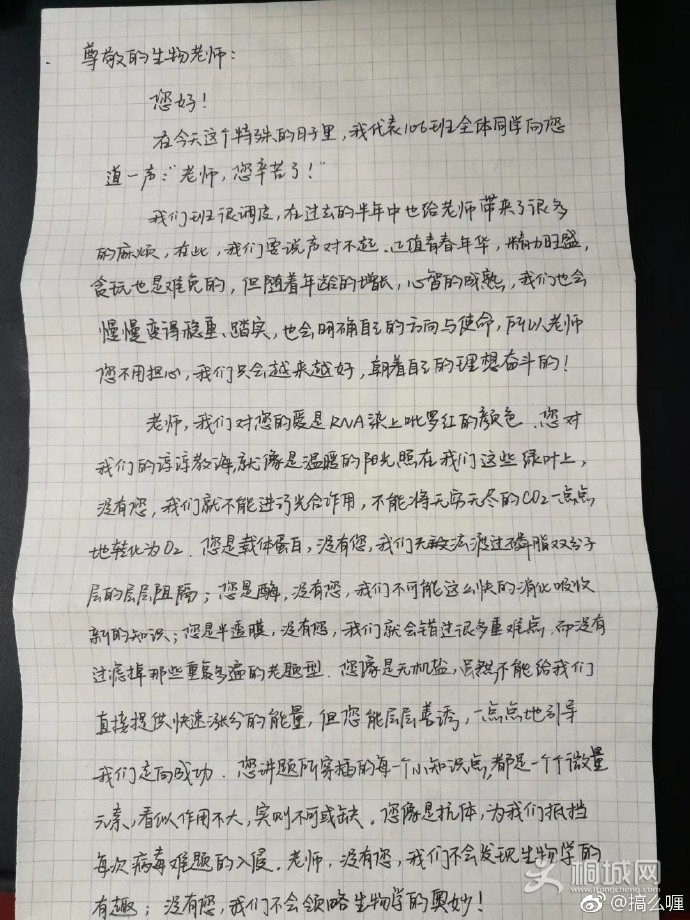 尊敬的生物老师：
您好！
在今天这个特殊的日子里，我代表106班全体同学向您
道一声："老师，您辛苦了！"
我们班很调皮，在过去的半年中也给老师带来了很多
的麻烦，在此，我们要说声对不起．正值青春年华，精力旺盛，
贪玩也是难免的，但随着年龄的增长，心智的成熟，我们也会
慢慢变得稳重、踏实，也会明确自己的方向与使命，所以老师
您不用担心，我们只会越来越好，朝着自己的理想奋斗的！
老师，我们对您的爱是RNA染上吡罗红的颜色．您对
我们的谆谆教诲，就像是温暖的阳光照在我们这些绿叶上，
没有您，我们就不能进行光合作用，不能将无穷无尽的CO2一点点
地转化为O2．您是载体蛋白，没有您，我们无法渡过磷脂双分子
层的层层阻隔；您是酶，没有您，我们不可能这么快的消化吸收
新的知识；您是半透膜，没有您，我们就会错过很多重难点，而没有
过滤掉那些重复多遍的老题型．您像是无机盐，虽然不能给我们
直接提供快速涨分的能量，但您能层层善诱，一点点地引导
我们走向成功．您讲题所穿插的每一个小知识点，都是一个个微量
元素，看似作用不大，实则不可或缺．您像是抗体，为我们抵挡
每次病毒难题的入侵．老师，没有您，我们不会发现生物学的
有趣；没有您，我们不会领略生物学的奥妙！
桐城网
itongcheng.com
@搞么喱